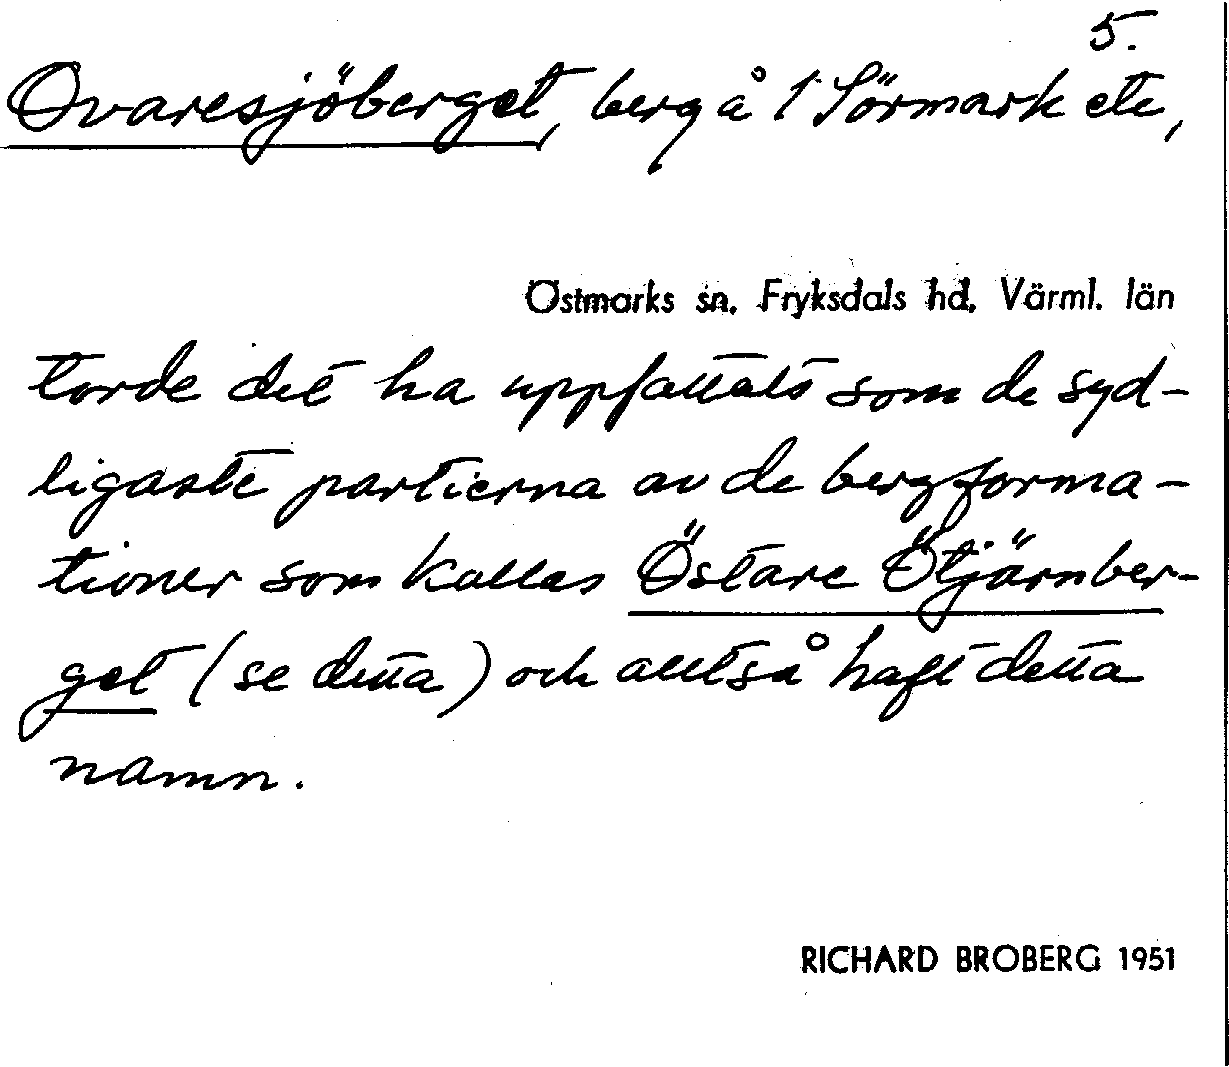 5.
Ovaresjöberget, berg å 1 Sörmark etc,
Östmarks sn. Fryksdals hd. Värml. län
torde det ha uppfattats som de syd-
ligaste partierna av de bergforma-
tioner som kallas Östare Ötjärnber-
get (se detta) och alltså haft detta
namn.
RICHARD BROBERG 1951